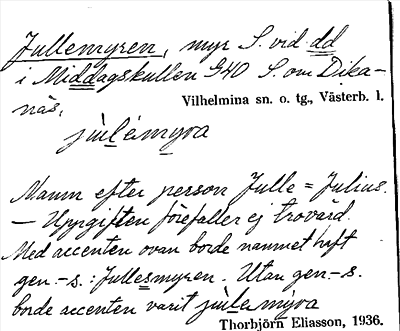 Jullemyren, myr S. vid dd
i Middagskullen 940 S. om Dika-
näs.
Vilhelmina sn. o. tg., Västerb. l.
jùlémyra
Namn efter person Julle = Julius.
— Uppgiften förefaller ej trovärd.
Med accenten ovan borde namnet haft
gen. -s.: Jullesmyren. Utan gen -s.
borde accenten varit jùlemyra
Thorbjörn Eliasson, 1936.